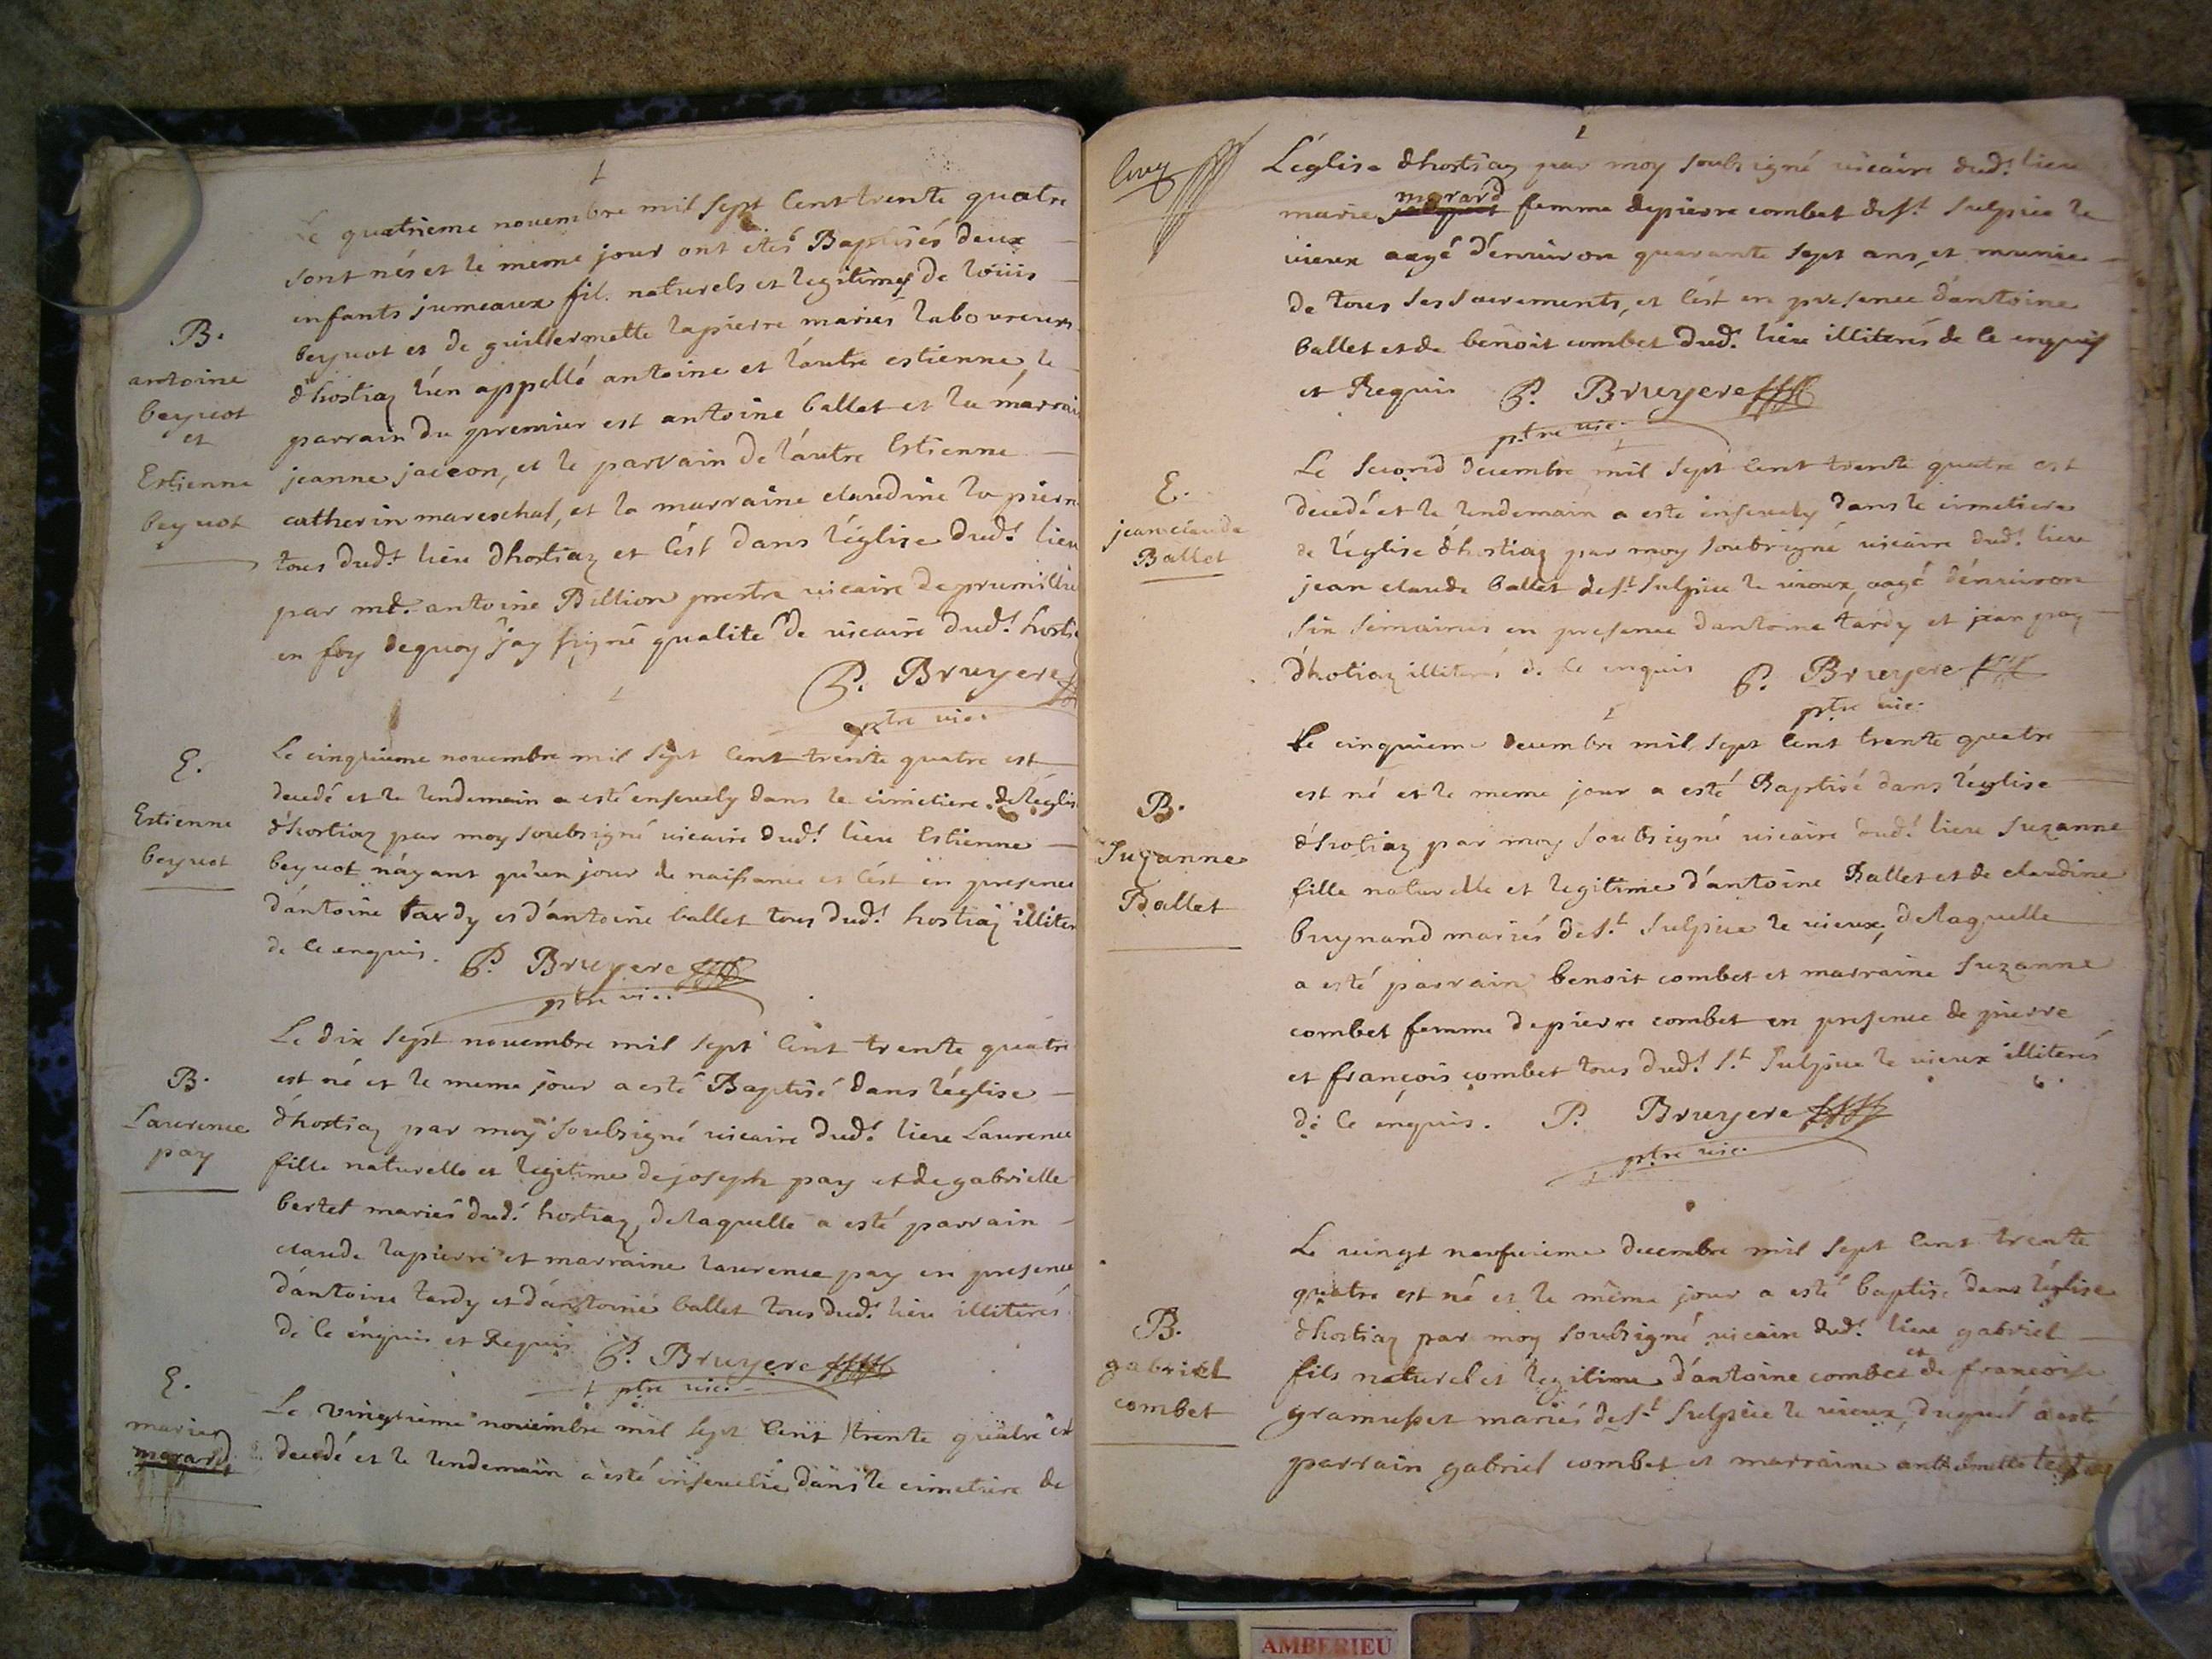 Le quatrieme novembre mil sept cent trente quatre
sont nés et le meme jour ont etés Baptisés deux
enfants jumeaux fil. naturels et legitimes de loüis
beyuot et de guillermette lapierre mariés laboureurs
d'hostiaz l'ün appellé antoine et l'autre estienne, le
parrain du premier est antoine ballet et la marrai
jeanne jaccon, et le parrain de l'autre Estienne
catherin mareschal, et la marraine claudine la pierre
tous dud.t lieu dhostiaz et c'est dans l'église dud.t lieu
par m.e antoine Billion prestre vicaire de prumillieu
en foy dequoy j'ay signé qualité de vicaire dud.t hosti
P. Bruyere
ptre vic.
B.
antoine
beyuot
et
Estienne
beyuot
Le cinquieme novembre mil sept cent trente quatre est
decedé et le lendemain a esté ensevely dans le cimetiere de l'églis
d'hostiaz par moy soubsigné vicaire dud.t lieu Estienne
beyuot n'ayant qu'un jour de naissance et c'est en presence
d'antoine tardy et d'antoine ballet tous dud.t hostiaz illiter
de ce enquis. P. Bruyere
ptre vic.
E.
Estienne
beyuot
Le dix sept novembre mil sept cent trente quatre
est né et le meme jour a esté Baptisé dans l'église
d'hostiaz par moy soubsigné vicaire dud.t lieu Laurence
fille naturelle et legitime de joseph pay et de gabrielle
bertet mariés dud.t hostiaz, de laquelle a esté parrain
claude lapierre et marraine laurence pay en presence
d'antoine tardy et d'antoine ballet tous dud.t lieu illiterés
de ce enquis et Requis P. Bruyere
ptre vic.
B.
Laurence
pay
Le vingtieme novembre mil sept cent trente quatre est
decedé et le lendemain a esté ensevelie dans le cimetiere de
E.
marie
morard
cinq
L'église d'hostiaz par moy soubsigné vicaire dud.t lieu
morard
marie femme de pierre combet de s.t sulpice le
vieux aagé d'environ quarante sept ans, et munie
de tous ses sacrements, et c'est en presence d'antoine
ballet et de benoit combet dud.t lieu illiterés de ce enquis
et Requis P. Bruyere
ptre vic.
Le second decembre mil sept cent trente quatre est
decedé et le lendemain a esté ensevely dans le cimetiere
de l'église d'hostiaz par moy soubsigné vicaire dud.t lieu
jean claude ballet de s.t sulpice le vieux, aagé d'environ
six semaines en presence d'antoine tardy et jean pay
d'hotiaz illiterés de ce enquis P. Bruyere
ptre vic.
E.
jean claude
Ballet
Le cinquieme decembre mil sept cent trente quatre
est né et le meme jour a esté Baptisé dans l'église
d'hotiaz par moy soubsigné vicaire dud.t lieu suzanne
fille naturelle et legitime d'antoine Ballet et de claudine
buynand mariés de s.t sulpice le vieux, de laquelle
a esté parrain benoit combet et marraine suzanne
combet femme de pierre combet en presence de pierre
et françois combet tous dud.t s.t sulpice le vieux illiterés
de ce enquis. P. Bruyere
ptre vic.
B.
Suzanne
Ballet
Le vingt neufvieme decembre mil sept cent trente
quatre est né et le même jour a esté baptisé dans l'église
d'hostiaz par moy soubsigné vicaire dud.t lieu gabriel
fils naturel et legitime d'antoine combet et de françoise
gramusset mariés de s.t sulpice le vieux, duquel a esté
parrain gabriel combet et marraine
B.
gabriel
combet
AMBERIEU